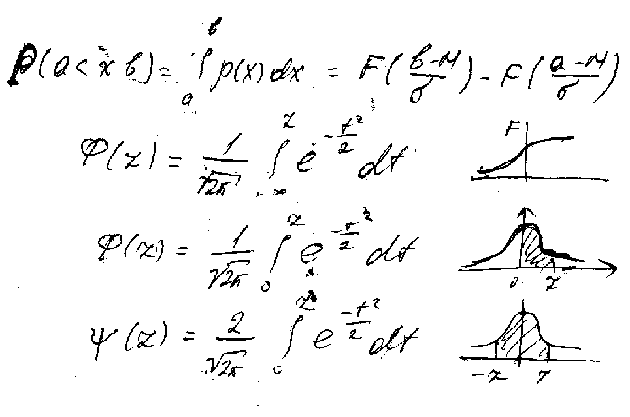 P(a< x b) = ∫_a^b p(x)dx = F((b-M)/σ) - F((a-M)/σ)
Φ(z) = 1/√2π ∫_{-∞}^z e^{-t²/2} dt F
Φ(z) = 1/√2π ∫_0^z e^{-t²/2} dt 0 z
Ψ(z) = 2/√2π ∫_0^z e^{-t²/2} dt -z z